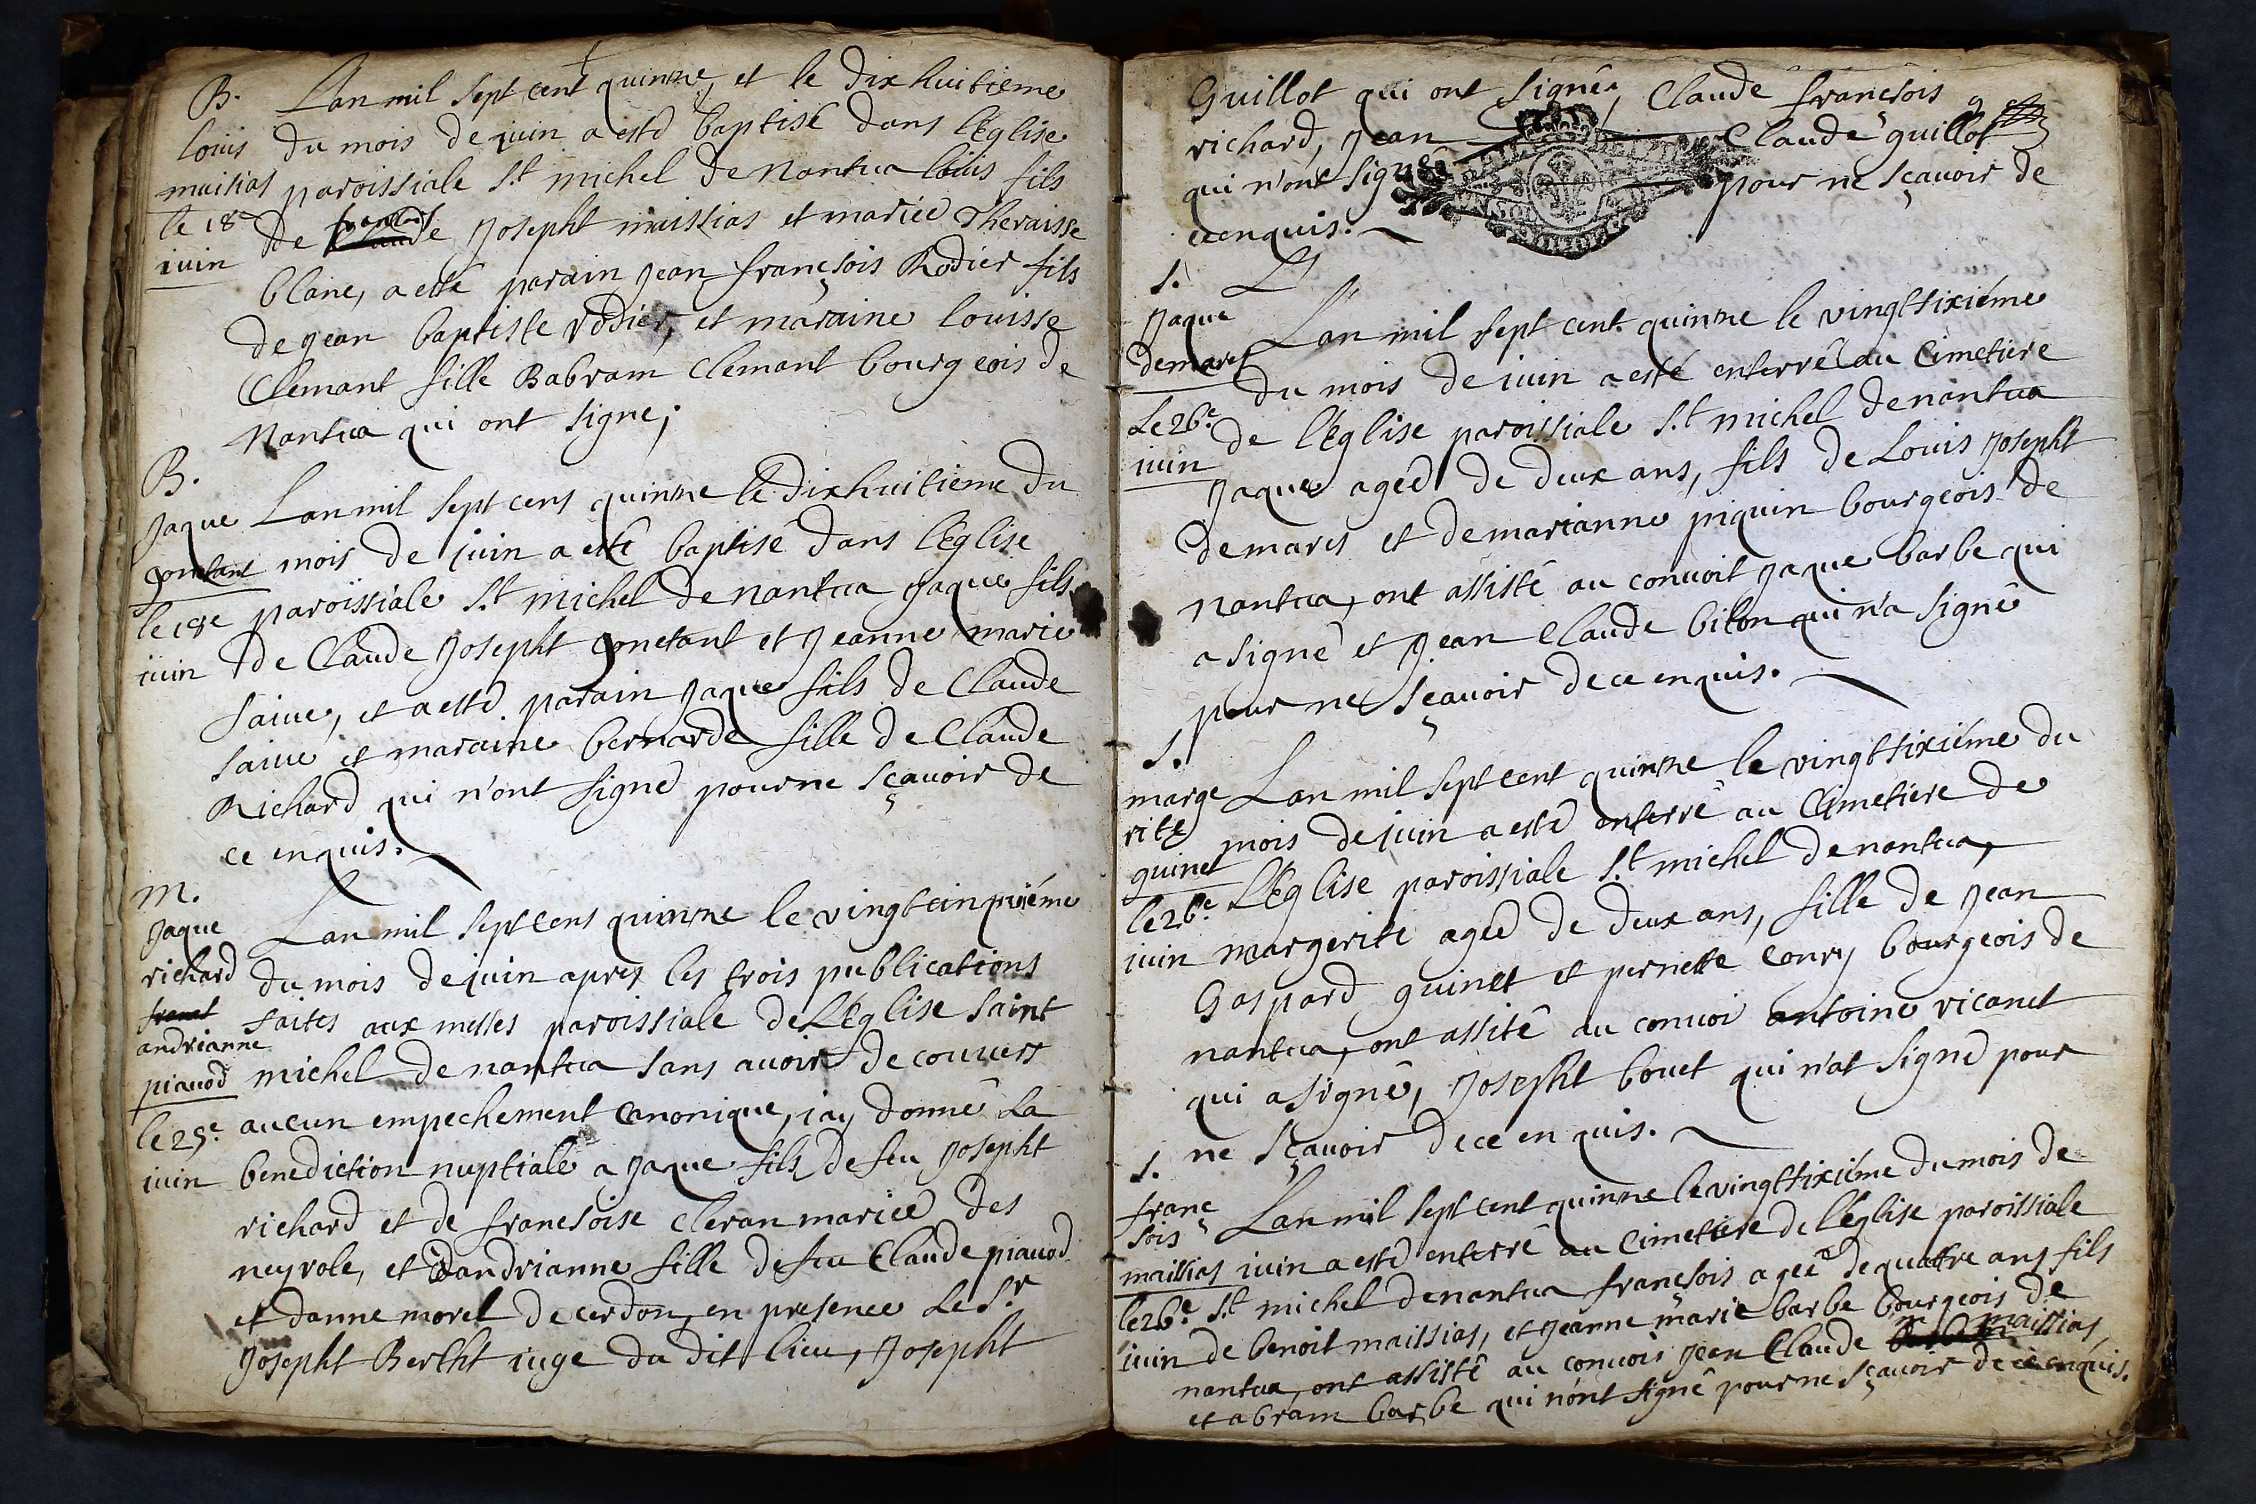 B. Lan mil sept cent quinze, et le dix huitieme
louis du mois de juin a esté baptisé dans l'Eglise
maisias paroissiale S.t michel de Nantua louis fils
le 18e de Josepht maissias et mariee Theraisse
iuin
blanc, a esté parain Jean françsois Rodier fils
de jean baptiste rodier, et maraine louisse
Clemant fille Babram Clemant bourgeois de
Nantua qui ont signe;
B.
Jaque Lan mil sept cens quinze le dixhuitieme du
gonetant mois de juin a esté baptisé dans l'Eglise
le 18e paroissiale S.t michel de nantua jaque fils
iuin de Claude Josepht gonetant et Jeanne marie
saive, et a esté parain Jaque fils de Claude
saive et maraine bernarde fille de Claude
Richard qui n'ont signé pour ne sçavoir de
ce enquis.
m.
Jaque Lan mil sept cens quinze le vingtcinquiéme
richard du mois de juin apres les trois publications
faites aux messes paroissiale de L'Eglise saint
andrianne
piavod michel de nantua sans avoir de couvers
le 25e. aucun empechement Canonique, iay donné La
iuin benediction nuptiale a Jaque fils de feu Josepht
richard et de francsoise Cleran mariee des
neyrole, et dandrianne fille de feu Claude piavod
et danne morel de cerdon, en presence Le S.r
Josepht Bertht iuge du dit lieu, Josepht
Guillot qui ont signé, Claude françsois
richard, Jean Claude guillot
qui n'ont signé pour ne sçavoir de
ce enquis.
S.
Jaque L'an mil sept cent quinze le vingtsixiéme
demares du mois de iuin a esté enterré au Cimetiere
Le 26.e de l'Eglise paroissiale S.t michel de nantua
iuin Jaque ageé de deux ans, fils de Louis Josepht
demares et de marianne piquin bourgeois de
nantua, ont assisté au convoit Jaque barbe qui
a signé et Jean Claude biton qui n'a signé
pour ne sçavoir de ce enquis.
S.
marge Lan mil sept cent quinze le vingtsixiéme du
rite mois de juin a esté enterré au Cimetiere de
quinet L'Eglise paroissiale S.t michel de nantua,
le 26.e
iuin margerite ageé de deux ans, fille de Jean
Gaspard quinet et pernette Coury bourgeois de
nantua, ont assité au convoi antoine ricanet
qui a signé, Josepht bouet qui n'at signé pour
ne sçavoir de ce en quis.
S.
franc Lan mil sept cent quinze le vingtsixiéme du mois de
sois
maissias iuin a esté enterré au Cimetiere de l'eglise paroissiale
le 26.e S.t michel de nantua françsois ageé de quattre ans fils
iuin de benoit maissias, et Jeanne marie barbe bourgeois de
nantua, ont assisté au convois Jean Claude maissias
et abram barbe qui n'ont signé pour ne sçavoir de ce enquis.